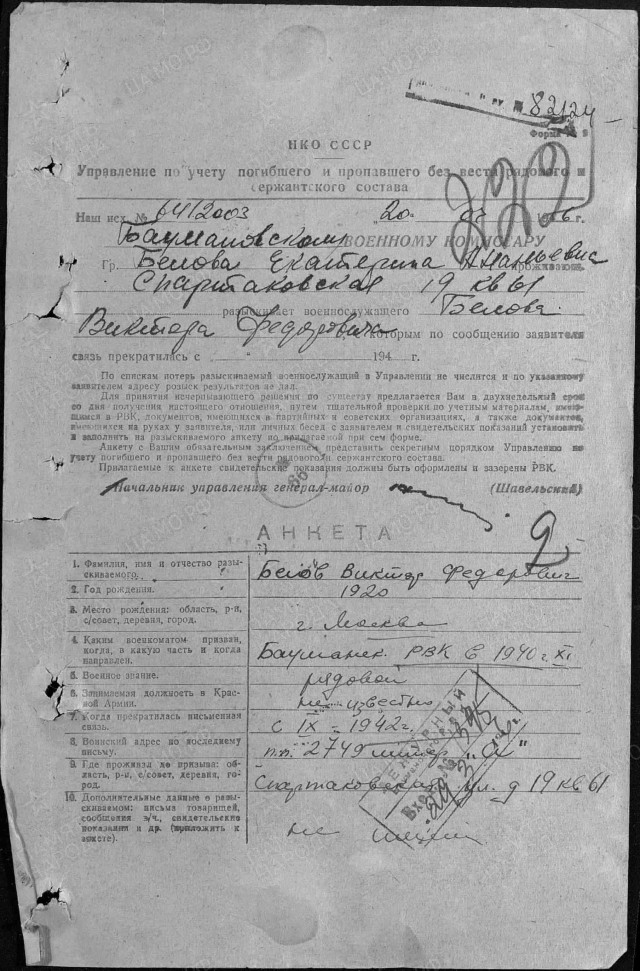 82124
Форма № 9
НКО СССР
Управление по учету погибшего и пропавшего без вести рядового и
сержантского состава
Наш исх. № 6412003 „20.
Баумановскому ВОЕННОМУ КОМИССАРУ
Гр. Белова Екатерина проживающ.
Спартаковская 19 кв 61
разыскивает военнослужащего Белова
Виктора Федоровича с которым по сообщению заявителя
связь прекратилась с „ “ 194 г.
По спискам потерь разыскиваемый военнослужащий в Управлении не числится и по указанному
заявителем адресу розыск результатов не дал.
Для принятия исчерпывающего решения по существу предлагается Вам в двухнедельный срок
со дня получения настоящего отношения, путем тщательной проверки по учетным материалам, имею-
щимся в РВК, документов, имеющихся в партийных и советских организациях, а также документов,
имеющихся на руках у заявителя, или личных бесед с заявителем и свидетельских показаний установить
и заполнить на разыскиваемого анкету по прилагаемой при сем форме.
Анкету с Вашим обязательным заключением представить секретным порядком Управлению по
учету погибшего и пропавшего без вести рядового и сержантского состава.
Прилагаемые к анкете свидетельские показания должны быть оформлены и заверены РВК.
Начальник управления генерал-майор (Шавельский)
АНКЕТА
1. Фамилия, имя и отчество разы-
скиваемого. Белов Виктор Федорович
2. Год рождения. 1920
3. Место рождения: область, р-н,
с/совет, деревня, город. г. Москва
4. Каким военкоматом призван,
когда, в какую часть и когда
направлен. Бауманск. РВК в 1940 г XI
5. Военное звание. рядовой
6. Занимаемая должность в Крас-
ной Армии. не известно
7. Когда прекратилась письменная
связь. с IX - 1942 г.
8. Воинский адрес по последнему
письму. п.п. 2749 литер
9. Где проживал до призыва: об-
ласть, р-н, с/совет, деревня, го-
род. Спартаковская ул. д 19 кв 61
10. Дополнительные данные о разы-
скиваемом: письма товарищей,
сообщения в/ч., свидетельские
показания и др. (приложить к
анкете). не